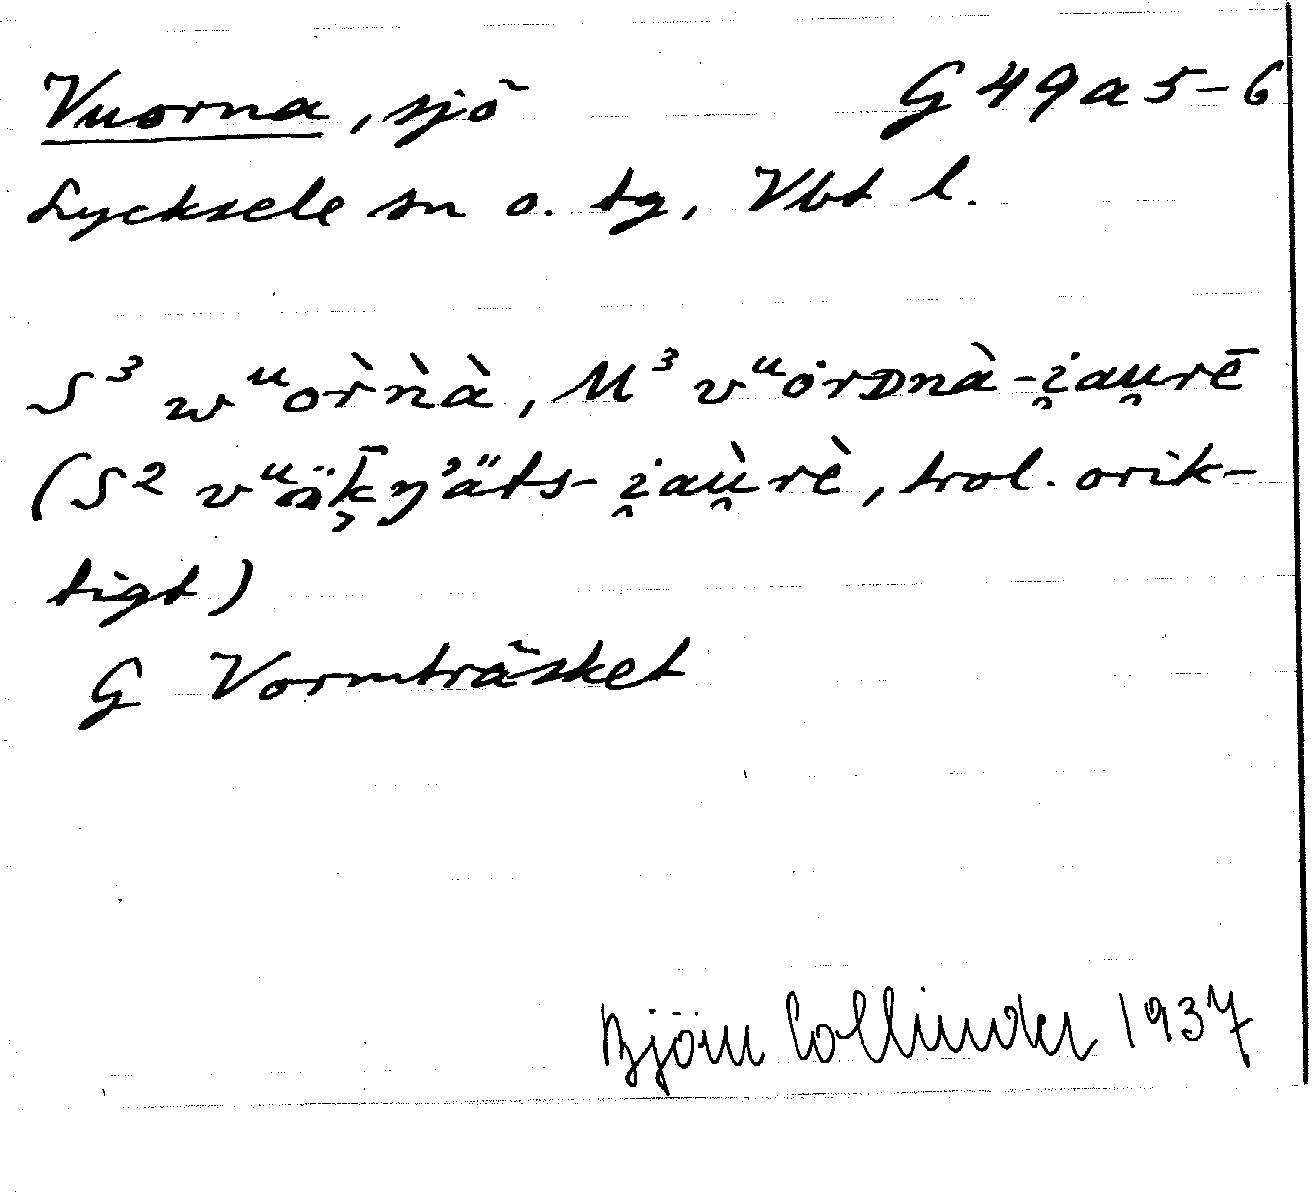 Vuorna, sjö G 49 a 5-6
Lycksele sn o. tg, Vbt l.
S³ wᵘor̀ǹà, M³ vᵘȯrᴅnà-i̯au̯rē
(S² vᵘäk̯̄ŋ’äts-i̯aù̯rè, trol. orik-
tigt)
G Vormträsket
Björn Collinder 1937